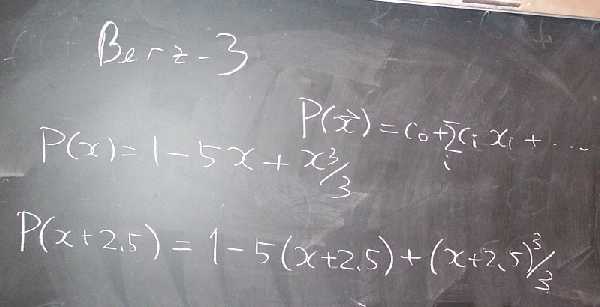 Berz-3
P(x⃗) = c₀ + Σᵢ cᵢ xᵢ + ...
P(x) = 1 - 5x + x³/3
P(x+2.5) = 1 - 5(x+2.5) + (x+2.5)³/3